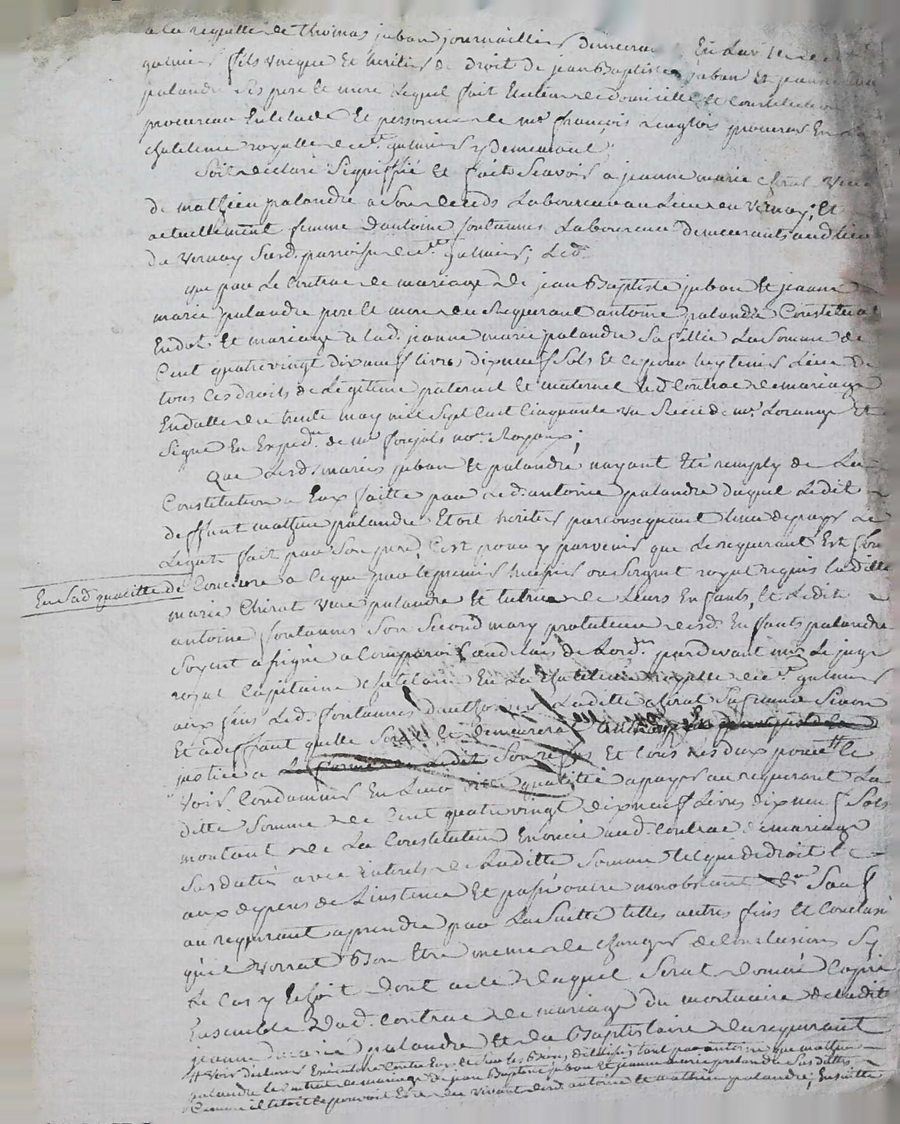 a la requette de thomas juban journaillier demeurant En La ville de st
galmier fils unicque Et heritier de droit de jean Baptiste juban Et jeanne marie
palandre ses pere Et mere Lequel fait Election de domicille Et Constitution
procureur En letude Et personne de me françois renglois procureur En
chatelenie royalle de st galmier y demeurant;
Soit declaré Signiffié Et fait Scavoir a jeanne marie chirat veuve
de mathieu palandre a Son deceds Laboureur au Lieu du vernay; Et
actuellement femme d'antoine fontannes Laboureur demeurants aud Lieu
du vernay Susd. parroisse de st galmier; Led.
que par Le Contrac de mariage de jean Baptiste juban Et jeanne
marie palandre pere Et mere du Requerant antoine palandre Constitua
En dot Et mariage a lad. jeanne marie palandre Sa fille La Somme de
Cent quatre vingt dix neuf livres dix neuf Sols Et ce pour luy tenir Lieu de
tous Ses droits de Legitime paternel Et maternel led. Contrac de mariage
En datte du trente may mil Sept Cent Cinquante un Recü de me Lorange Et
Signé En Expedon. de me notre. Royaux;
Que Lesd. mariés juban Et palandre nayant Eté remply de La
Constitution a Eux faitte par led. antoine palandre duquel Ledit
deffunt mathieu palandre Etoit heritier par consequent tenu de payer Le
Legat fait par Son pere, C'est pour y parvenir que Le requerant Est
En Sad. qualitté de Conclure a Ce que par le premier huissier ou Sergent royal requis Laditte
marie Chirat veuve palandre Et tutrice de Leurs Enfants, Et Ledit
antoine fontannes Son Second mary protuteur desd. Enfants palandre
Soyent assigné a Comparoir pardevant mr Le juge
royal Capitaine chatelain En La chatelenie royalle de st galmier
aux fins Led. fontannes d'authoriser Laditte chirat Sa femme Sinon
Et a deffaut quelle Sera Et demeurera authorisée
justice a Son refus Et tous les deux pour Se
voir Condamner En Leur ditte qualitté a payer au requerant La
ditte Somme de Cent quatre vingt dix neuf Livres dix neuf Sols
montant de La Constitution Enoncée aud. Contrac de mariage
Susdatté avec interets de Laditte Somme tel que de droit Et
aux depens de L'instance Et Sauf
au requerant a prendre par La Suitte telles autres fins Et Conclusions
quil verrat Bon Etre meme de changer de Conclusions Sy
Le Cas y Echoit dont acte duquel Serat donné Copie
Ensemble dud. contrac de mariage du mortuaire de ladite
jeanne marie palandre Et du Baptistaire du requerant
# voir declarer Executoire Contre Eux tout par antoine que mathieu
palandre le contrat de mariage de jean Baptiste juban Et jeanne marie palandre Susdattés
Comme il Etoit Et pouvoit Etre du vivant desd. antoine Et mathieu palandre; Ensuitte